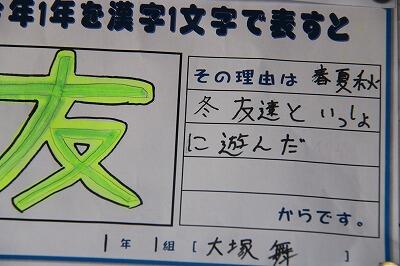 年1年を漢字1文字で表すと
友
その理由は 春夏秋
冬 友達と いっしょ
に 遊んだ
からです。
1年 1組 [大塚 舞 ]